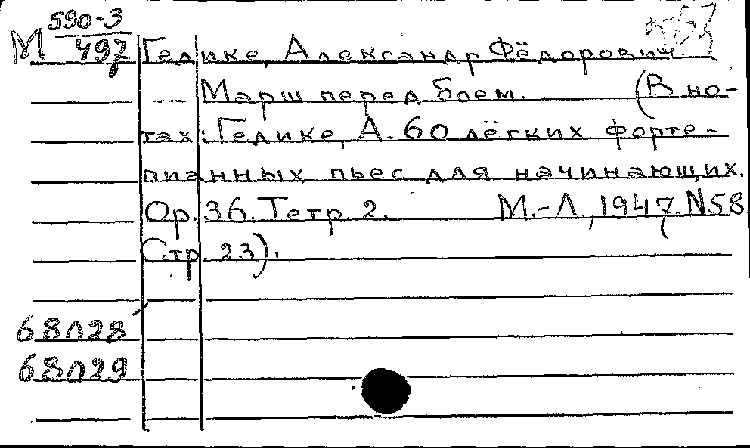 М 590-3
497 Гедике, Александр Фёдорович
Марш перед боем. (В но-
тах: Гедике, А. 60 лёгких форте-
пианных пьес для начинающих.
Ор. 36. Тетр 2. М.-Л, 1947. N58
Стр. 23).
68028
68029